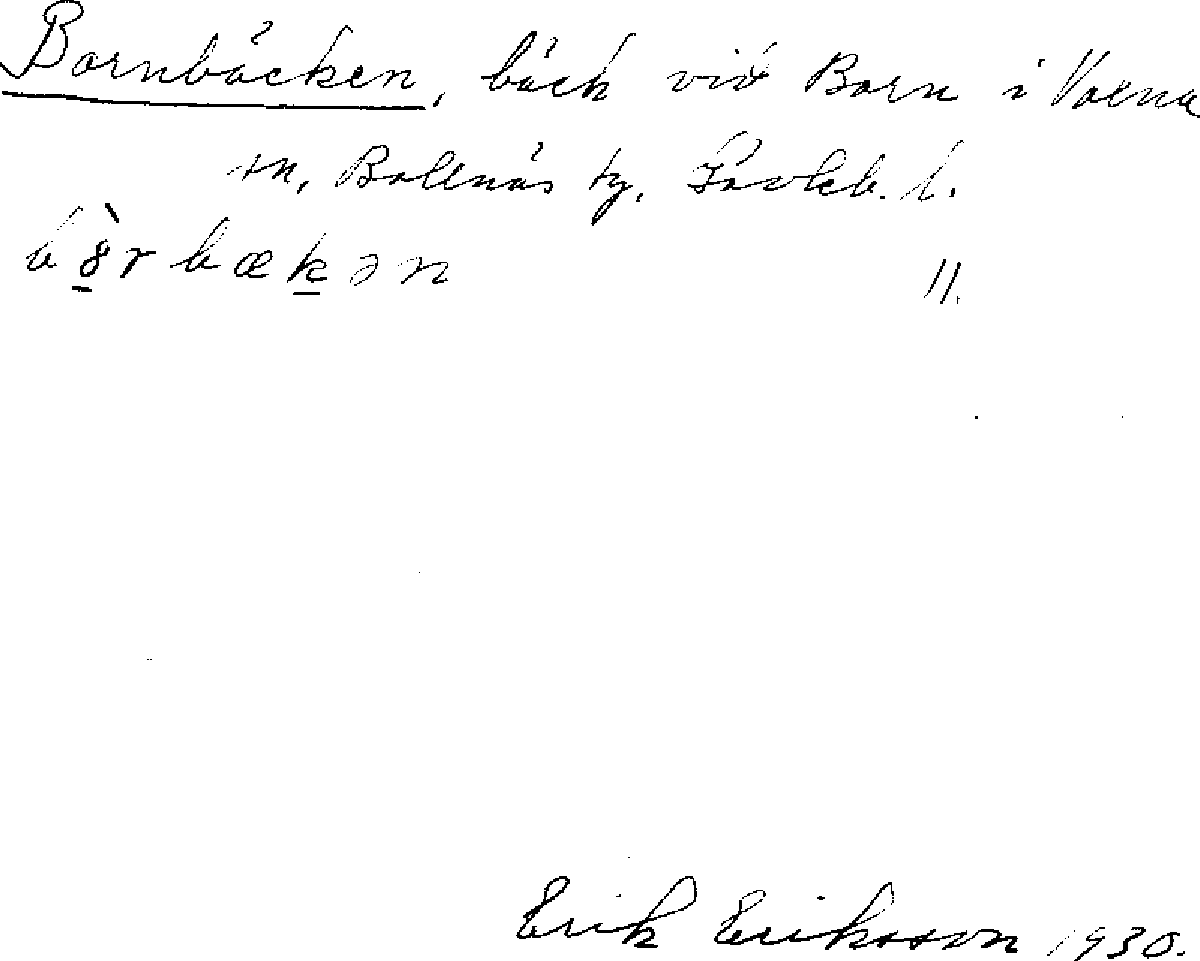 Bornbäcken, bäck vid Born i Voxna
sn, Bollnäs tg, Gävleb. l.
b8̲̀rbæk̲ən 11.
Erik Eriksson 1930.